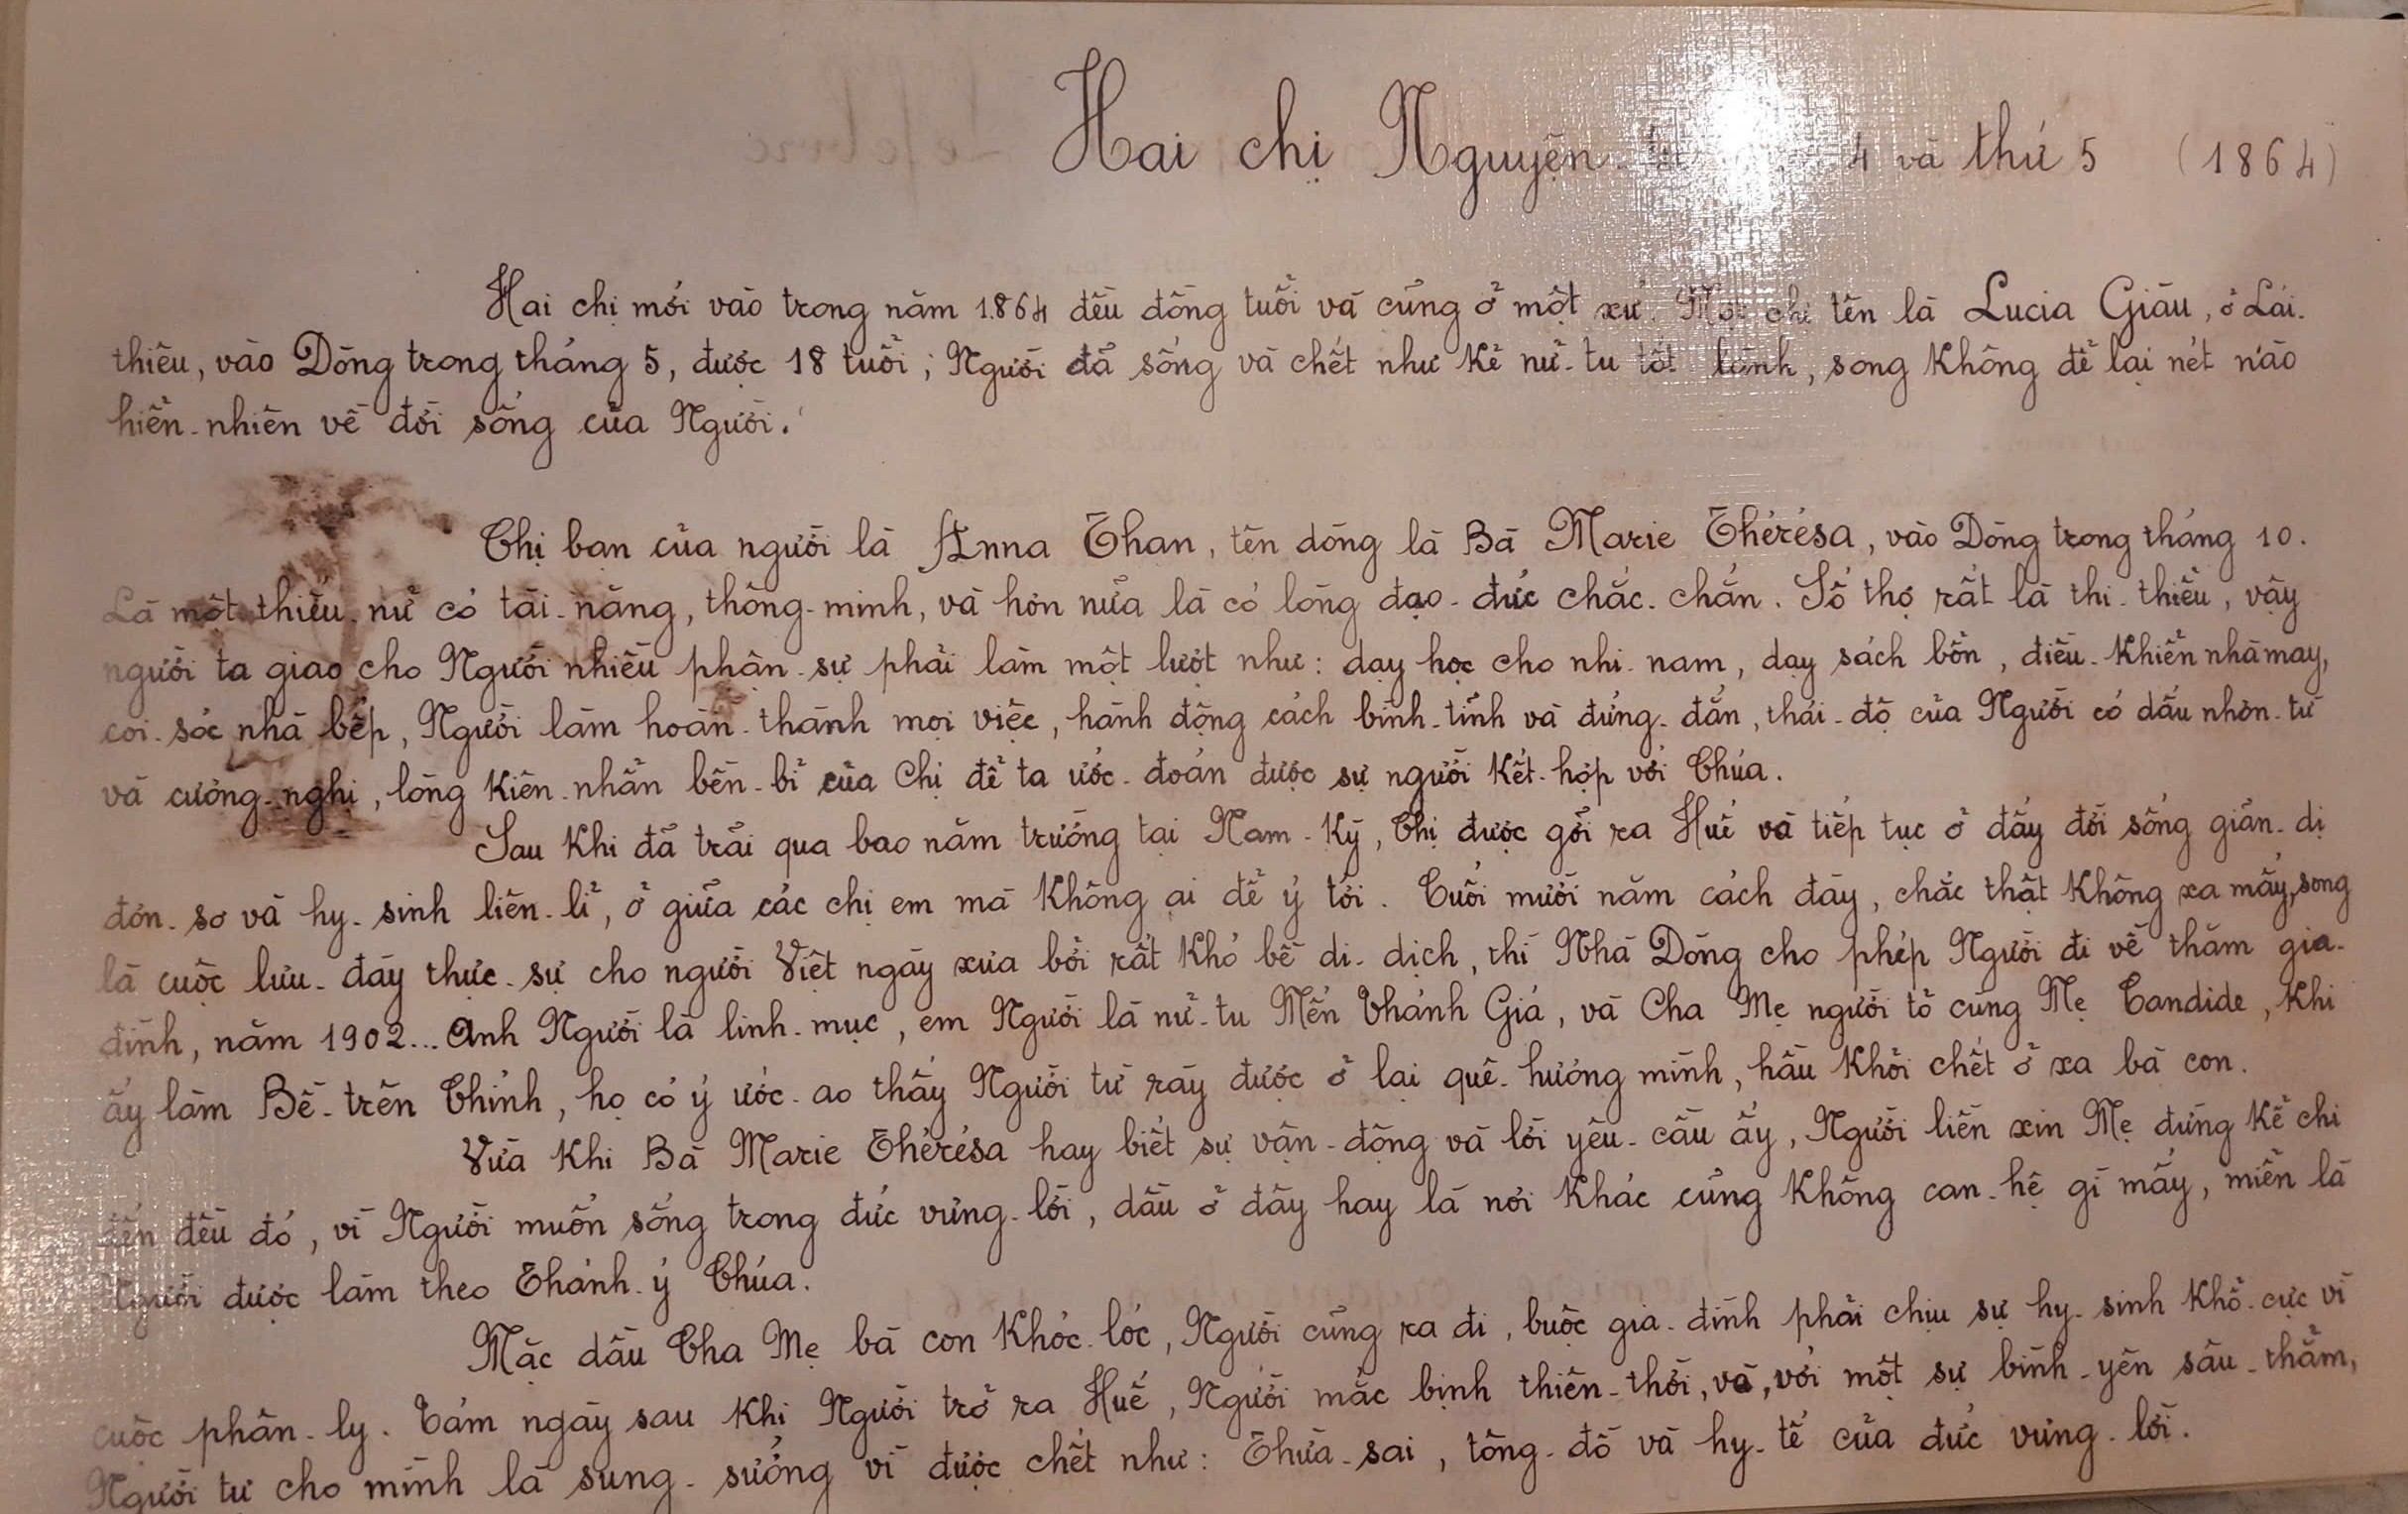 Hai chị Nguyện 4 và thứ 5 (1864)
Hai chị mới vào trong năm 1864 đều đồng tuổi và cùng ở một xứ. Một chị tên là Lucia Giàu, ở Lái.
thiêu, vào Dòng trong tháng 5, được 18 tuổi ; Người đã sống và chết như kẻ nữ-tu tốt lành, song không để lại nét nào
hiển-nhiên về đời sống của Người.
Chị bạn của người là Anna Than, tên dòng là Bà Marie Thérésa, vào Dòng trong tháng 10.
Là một thiếu-nữ có tài-năng, thông-minh, và hơn nữa là có lòng đạo-đức chắc-chắn. Số thợ rất là thi-thiểu, vậy
người ta giao cho Người nhiều phận-sự phải làm một lượt như : dạy học cho nhi-nam, dạy sách bổn, điều-khiển nhà may,
coi-sóc nhà bếp, Người làm hoàn-thành mọi việc, hành động cách bình-tỉnh và đứng-đắn, thái-độ của Người có dấu nhơn-từ
và cương-nghị, lòng kiên-nhẫn bền-bỉ của Chị để ta ước-đoán được sự người kết-hợp với Chúa.
Sau khi đã trải qua bao năm trường tại Nam-Kỳ, Chị được gởi ra Huế và tiếp tục ở đấy đời sống giản-dị
đơn-sơ và hy-sinh liên-lỉ, ở giữa các chị em mà không ai để ý tới. Cuối mười năm cách đây, chắc thật không xa mấy, song
là cuộc lưu-đày thực-sự cho người Việt ngày xưa bởi rất khó bề di-dịch, thì Nhà Dòng cho phép Người đi về thăm gia-
đình, năm 1902... Anh Người là linh-mục, em Người là nữ-tu Mến Thánh Giá, và Cha Mẹ người tỏ cùng Mẹ Candide, khi
ấy làm Bề-trên Chính, họ có ý ước-ao thấy Người từ rày được ở lại quê-hương mình, hầu khỏi chết ở xa bà con.
Vừa khi Bà Marie Thérésa hay biết sự vận-động và lời yêu-cầu ấy, Người liền xin Mẹ đừng kể chi
đến đều đó, vì Người muốn sống trong đức vưng-lời, dầu ở đây hay là nơi khác cũng không can-hệ gì mấy, miễn là
Người được làm theo Thánh-ý Chúa.
Mặc dầu Cha Mẹ bà con khóc-lóc, Người cũng ra đi, buộc gia-đình phải chịu sự hy-sinh khổ-cực vì
cuộc phân-ly. Tám ngày sau khi Người trở ra Huế, Người mắc bịnh thiên-thời, và, với một sự bình-yên sâu-thẳm,
Người tự cho mình là sung-sướng vì được chết như : Thừa-sai, tông-đồ và hy-tế của đức vưng-lời.